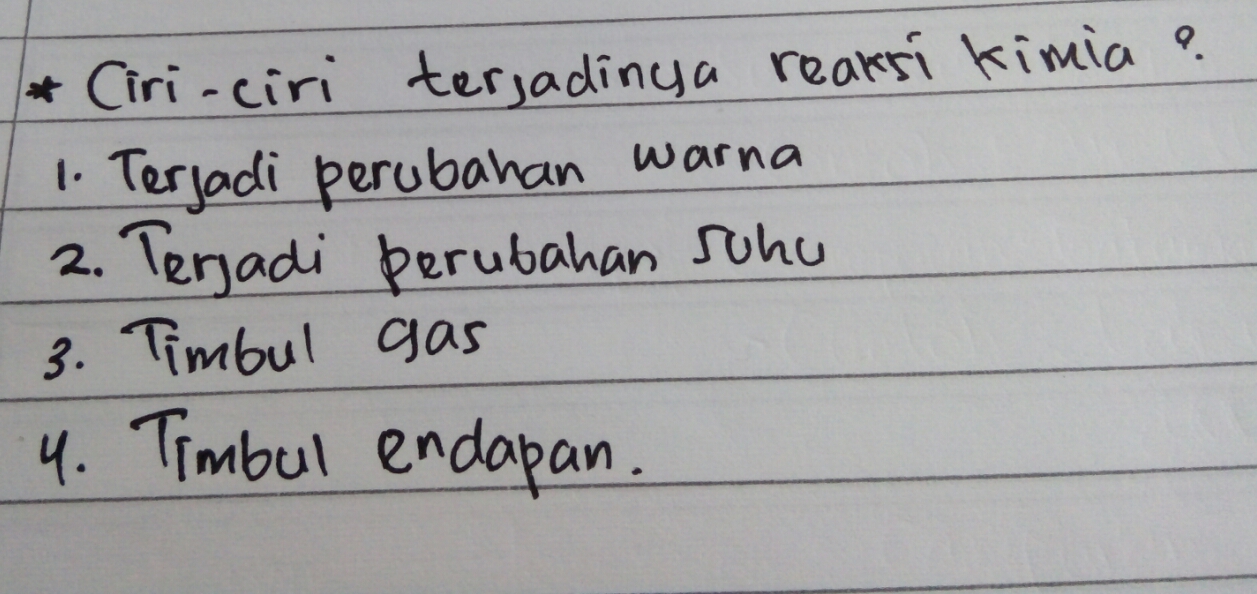 * Ciri-ciri terjadinya reaksi kimia ?
1. Terjadi perubahan warna
2. Terjadi perubahan suhu
3. Timbul gas
4. Timbul endapan.